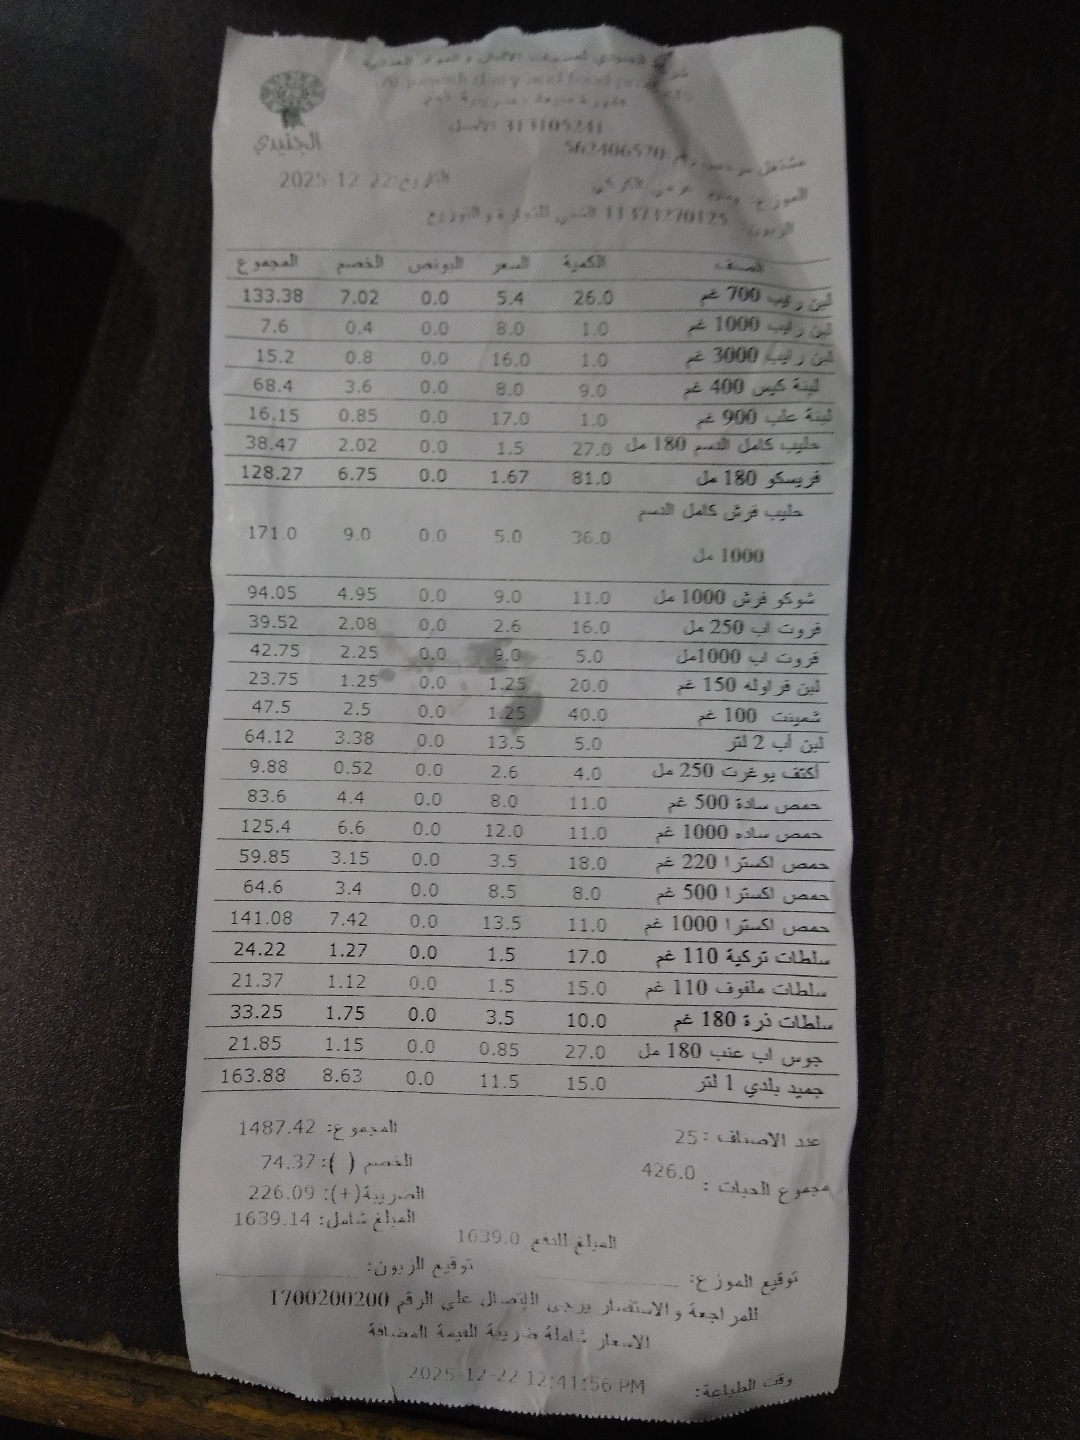 الجنيدي
313105241 الأصل
مشتغل مرخص رقم: 562406570
التاريخ: 2025-12-22
الزبون: 11373270125
الصنف الكمية السعر البونص الخصم المجموع
لبن رايب 700 غم 26.0 5.4 0.0 7.02 133.38
لبن رايب 1000 غم 1.0 8.0 0.0 0.4 7.6
لبن رايب 3000 غم 1.0 16.0 0.0 0.8 15.2
لبنة كيس 400 غم 9.0 8.0 0.0 3.6 68.4
لبنة علب 900 غم 1.0 17.0 0.0 0.85 16.15
حليب كامل الدسم 180 مل 27.0 1.5 0.0 2.02 38.47
فريسكو 180 مل 81.0 1.67 0.0 6.75 128.27
حليب فرش كامل الدسم
1000 مل 36.0 5.0 0.0 9.0 171.0
شوكو فرش 1000 مل 11.0 9.0 0.0 4.95 94.05
فروت اب 250 مل 16.0 2.6 0.0 2.08 39.52
فروت اب 1000مل 5.0 9.0 0.0 2.25 42.75
لبن فراوله 150 غم 20.0 1.25 0.0 1.25 23.75
شمينت 100 غم 40.0 1.25 0.0 2.5 47.5
لبن أب 2 لتر 5.0 13.5 0.0 3.38 64.12
أكتف يوغرت 250 مل 4.0 2.6 0.0 0.52 9.88
حمص سادة 500 غم 11.0 8.0 0.0 4.4 83.6
حمص ساده 1000 غم 11.0 12.0 0.0 6.6 125.4
حمص اكسترا 220 غم 18.0 3.5 0.0 3.15 59.85
حمص اكسترا 500 غم 8.0 8.5 0.0 3.4 64.6
حمص اكسترا 1000 غم 11.0 13.5 0.0 7.42 141.08
سلطات تركية 110 غم 17.0 1.5 0.0 1.27 24.22
سلطات ملفوف 110 غم 15.0 1.5 0.0 1.12 21.37
سلطات ذرة 180 غم 10.0 3.5 0.0 1.75 33.25
جوس اب عنب 180 مل 27.0 0.85 0.0 1.15 21.85
جميد بلدي 1 لتر 15.0 11.5 0.0 8.63 163.88
عدد الاصناف : 25 المجموع: 1487.42
مجموع الحبات : 426.0 الخصم ( ): 74.37
الضريبة(+): 226.09
المبلغ شامل: 1639.14
المبلغ للدفع 1639.0
توقيع الموزع: توقيع الزبون:
للمراجعة والاستفسار يرجى الاتصال على الرقم 1700200200
الاسعار شاملة ضريبة القيمة المضافة
وقت الطباعة: 2025-12-22 12:41:56 PM